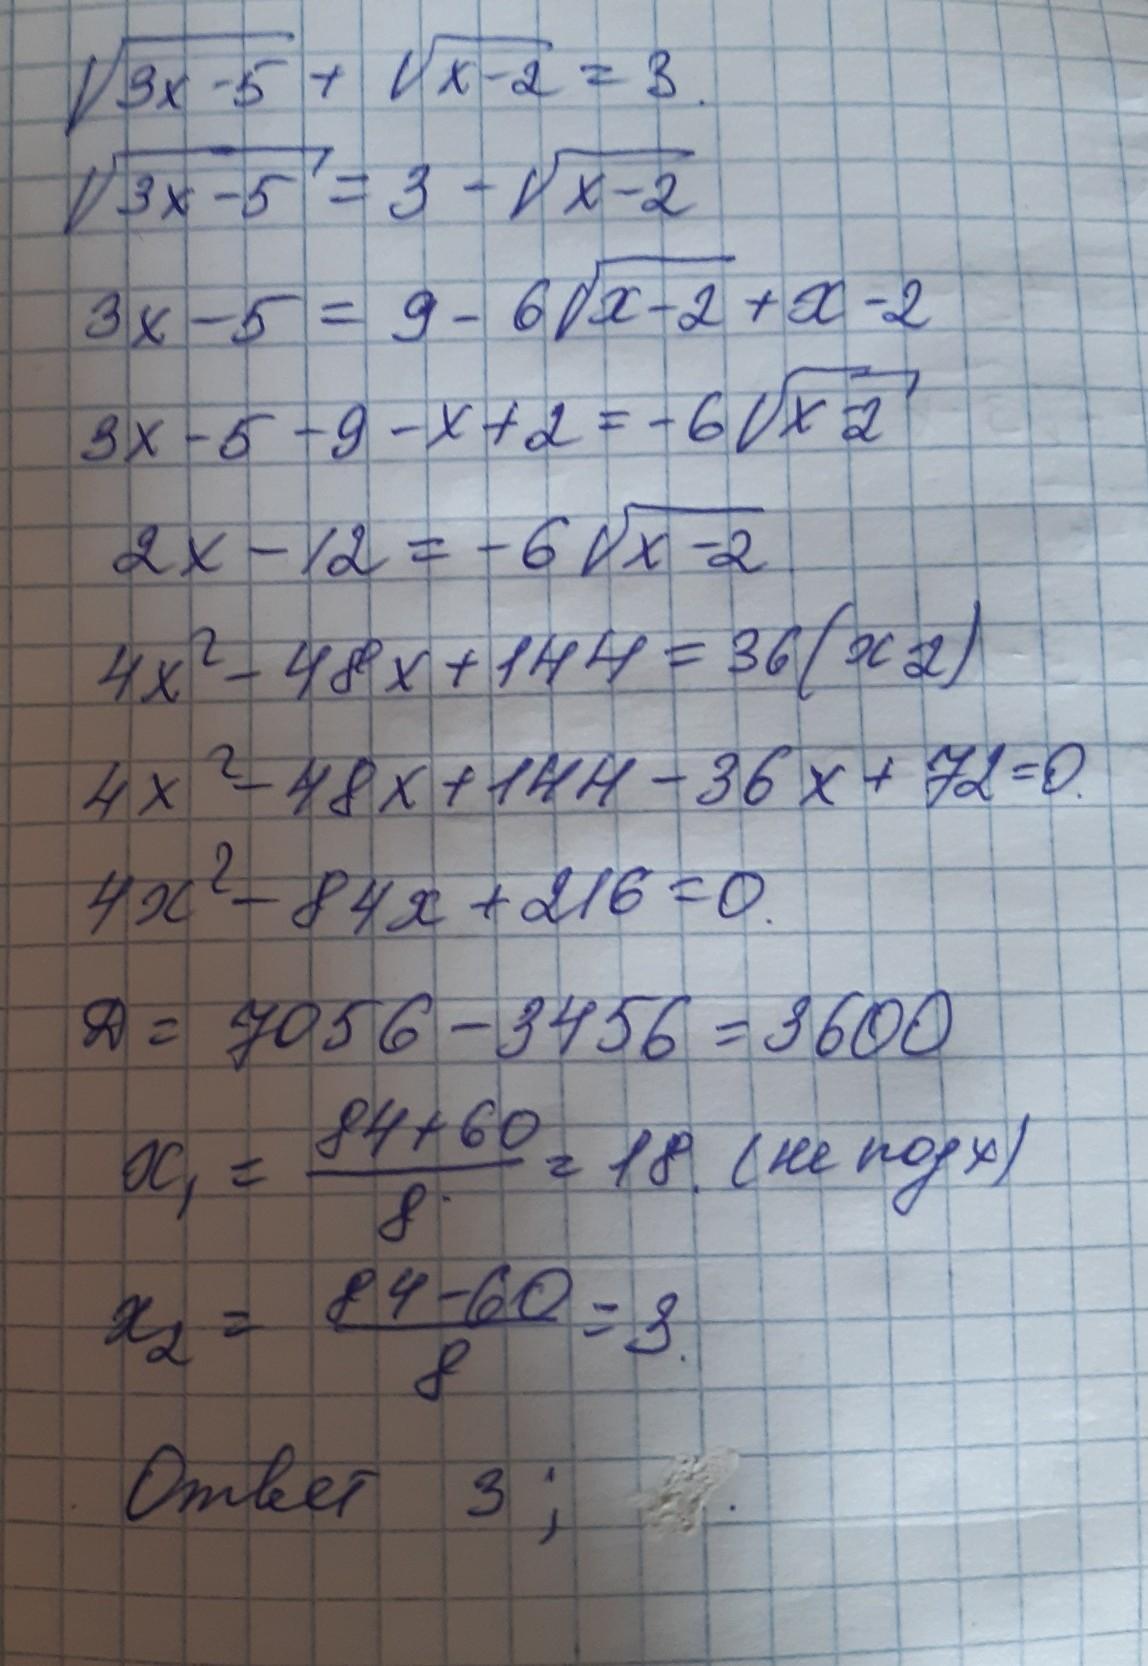 √(3x-5) + √(x-2) = 3.
√(3x-5) = 3 - √(x-2)
3x - 5 = 9 - 6√(x-2) + x - 2
3x - 5 - 9 - x + 2 = -6√(x-2)
2x - 12 = -6√(x-2)
4x² - 48x + 144 = 36(x 2)
4x² - 48x + 144 - 36x + 72 = 0.
4x² - 84x + 216 = 0.
Д = 7056 - 3456 = 3600
x₁ = (84+60)/8 = 18. (не подх)
x₂ = (84-60)/8 = 3.
Ответ 3;